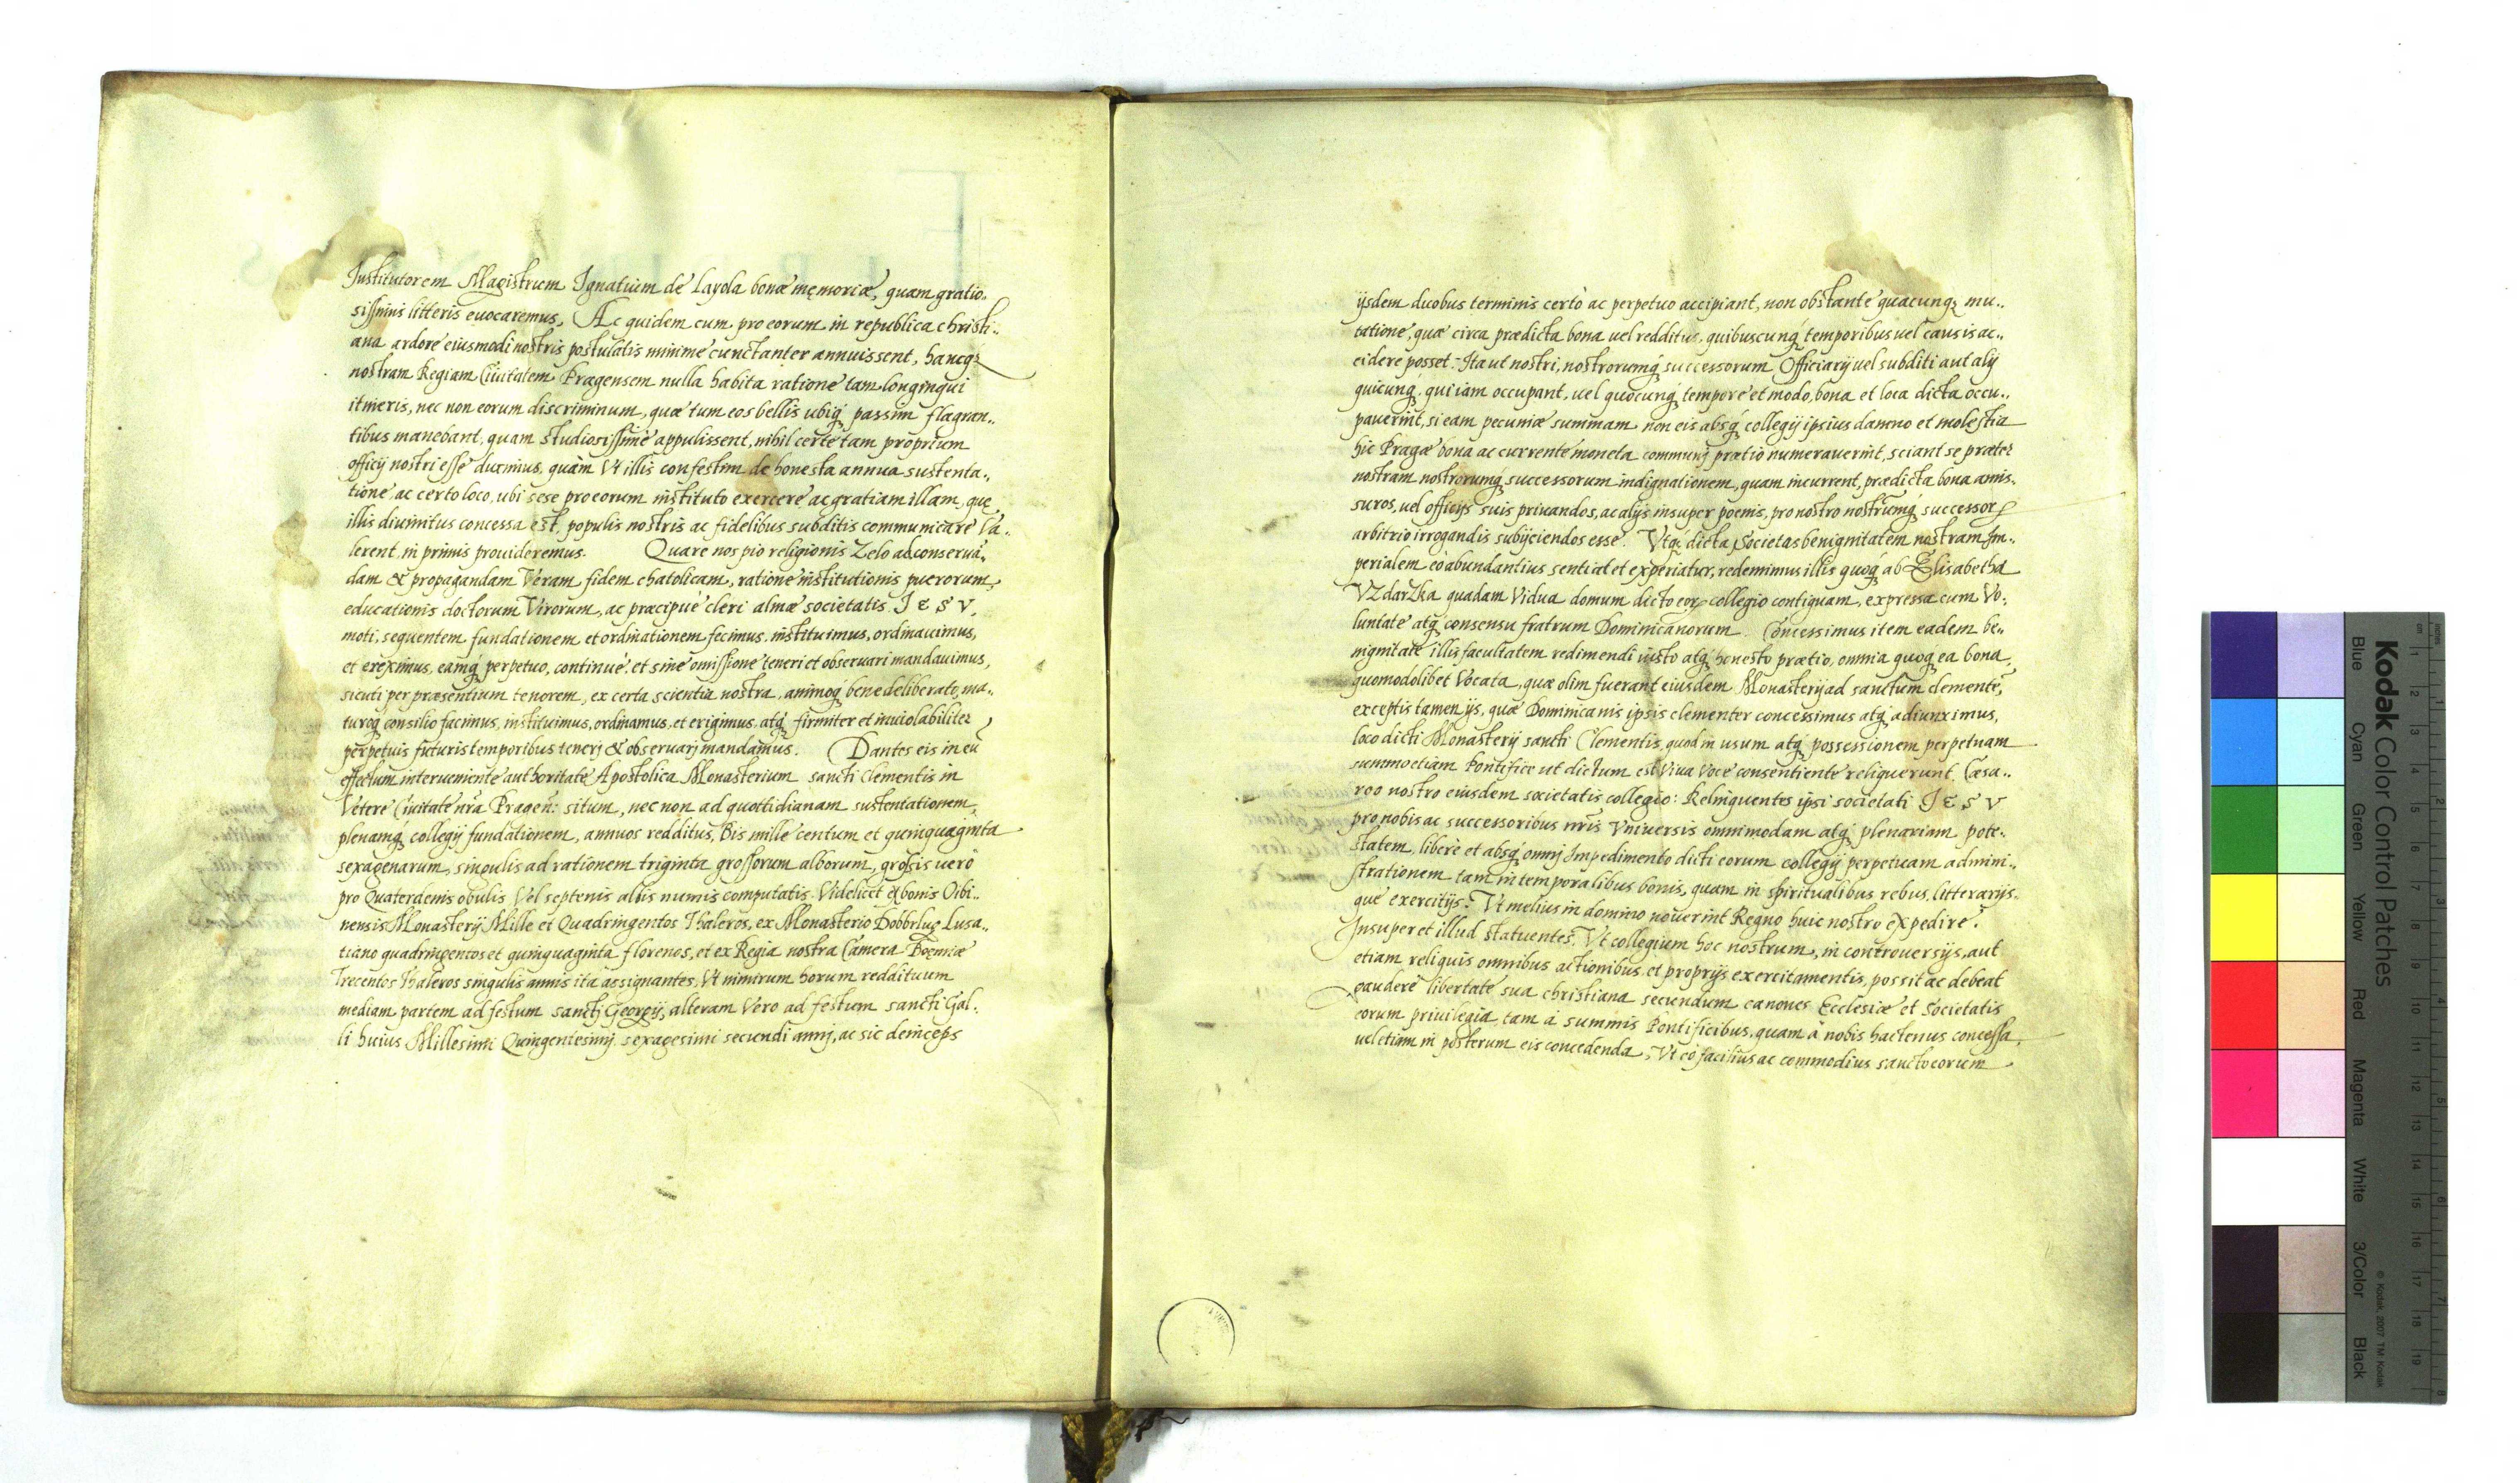 Institutorem Magistrum Ignatium de Layola bonæ memoriæ, quam gratio..
sissimis litteris euocaremus, Ac quidem cum pro eorum in republica christi..
ana ardore eiusmodi nostris postulatis minime cunctanter annuissent, hancq́;
nostram Regiam Ciuitatem Pragensem nulla habita ratione tam longinqui
itineris, nec non eorum discriminum, quæ tum eos bellis ubiq́; passim flagran..
tibus manebant, quam studiosissime appulissent, nihil certe tam proprium
officij nostri esse duximus, quàm Vt illis confestim de honesta annua sustenta..
tione ac certo loco, ubi sese pro eorum instituto exercere ac gratiam illam, quę
illis diuinitus concessa est, populis nostris ac fidelibus subditis communicare Va..
lerent, in primis prouideremus. Quare nos pio religionis Zelo ad conseruā..
dam & propagandam Veram fidem chatolicam, ratione institutionis puerorum,
educationis doctorum Virorum, ac præcipuè cleri almæ societatis I E S V,
moti, sequentem fundationem et ordinationem fecimus, instituimus, ordinauimus,
et ereximus, eamq́; perpetuo, continuè, et sine omissione teneri et obseruari mandauimus,
sicuti per præsentium tenorem, ex certa scientia nostra, animoq́; bene deliberato, ma..
turoq; consilio facimus, instituimus, ordinamus, et erigimus, atq́; firmiter et inuiolabiliter
perpetuis futuris temporibus tenerj & obseruarj mandamus. Dantes eis in eū
effectum interueniente authoritate Apostolica Monasterium sancti Clementis in
Vetere Ciuitate nr̄a Pragen̄: situm, nec non ad quottidianam sustentationem,
plenamq́; collegij fundationem, annuos redditus, Bis mille centum et quinquaginta
sexagenarum, singulis ad rationem triginta grossorum alborum, grossis uero
pro Quaterdenis obulis Vel septenis albis numis computatis. Videlicet ex bonis Oibi..
nensis Monasterij Mille et Quadringentos Thaleros, ex Monasterio Dobbrlug Lusa..
tiano quadringentos et quinquaginta florenos, et ex Regia nostra Camera Boęmiæ
Trecentos Thaleros singulis annis ita assignantes, Vt nimirum horum reddituum
mediam partem ad festum sanctj Georgij, alteram Vero ad festum sancti Gal..
li huius Millesimi Quingentesimj sexagesimi secundi annj, ac sic deinceps
ijsdem duobus terminis certò ac perpetuo accipiant, non obstante quacunq; mu..
tatione, quæ circa prædicta bona uel redditus, quibuscunq́; temporibus uel causis ac..
cidere posset. Ita ut nostri, nostrorumq́; successorum Officiarij uel subditi aut alij
quicunq́; qui iam occupant, uel quocunq́; tempore et modo, bona et loca dicta occu..
pauerint, si eam pecuniæ summam non eis absq́; collegij ipsius damno et molestia
hic Pragæ bona ac currente moneta communj prætio numerauerint, sciant se præter
nostram nostrorumq́; successorum indignationem, quam incurrent, prædicta bona amis..
suros, uel officijs suis priuandos, ac alijs insuper poenis, pro nostro nostrūmq́; successorꝝ
arbitrio irrogandis subijciendos esse. Vtq; dicta Societas benignitatem nostram Im..
perialem eò abundantius sentiat et experiatur, redemimus illis quoq́; ab Elisabetha
VZdarZka quadam Vidua domum dicto eorꝝ collegio contiguam, expressa cum Vo..
luntate atq́; consensu fratrum Dominicanorum. Concessimus item eadem be..
nignitate illis facultatem redimendi iusto atq́; honesto prætio, omnia quoq; ea bona,
quomodolibet Vocata, quæ olim fuerant eiusdem Monasterij ad sanctum clementē,
exceptis tamen ijs, quæ Dominicanis ipsis clementer concessimus atq́; adiunximus,
loco dicti Monasterij sancti Clementis, quod in usum atq́; possessionem perpetuam
summo etiam Pontifice ut dictum est Viua Voce consentiente reliquerunt. Cæsa..
reo nostro eiusdem societatis collegio: Relinquentes ipsi societati I E S V
pro nobis ac successoribus nr̄is Vniuersis omnimodam atq́; plenariam pote..
statem, liberè et absq́; omnj Impedimento dicti eorum collegij perpetuam admini..
strationem tam in temporalibus bonis, quam in spiritualibus rebus, litterarijs..
que exercitijs: Vt melius in domino nouerint Regno huic nostro expedire.
Insuper et illud statuentes, Vt collegium hoc nostrum, in controuersijs, aut
etiam reliquis omnibus actionibus et proprijs exercitamentis, possit ac debeat
gaudere libertate sua christiana secundum canones Ecclesiæ et Societatis
eorum priuilegia, tam à summis Pontificibus, quam à nobis hactenus concessa,
uel etiam in posterum eis concedenda, Vt eò facilius ac commodius sancto eorum
Kodak Color Control Patches
Blue Cyan Green Yellow Red Magenta White 3/Color Black
© Kodak, 2007 TM: Kodak